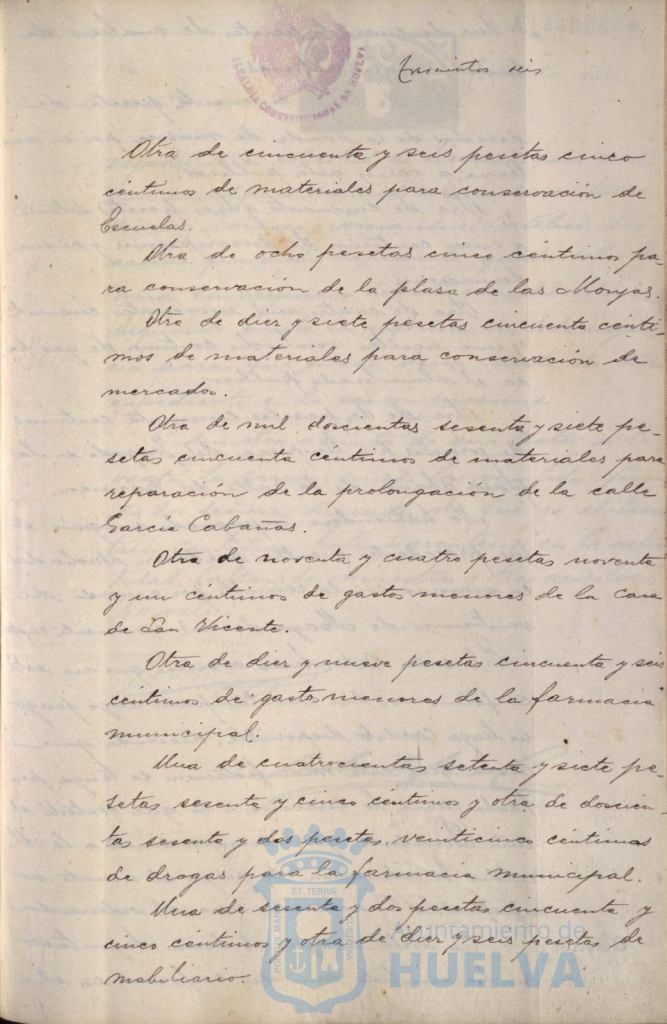 ALCALDIA CONSTITUCIONAL DE HUELVA
Trescientos seis
Otra de cincuenta y seis pesetas cinco
céntimos de materiales para conservación de
Escuelas.
Otra de ocho pesetas cinco céntimos pa-
ra conservación de la plaza de las Monjas.
Otra de diez y siete pesetas cincuenta cénti-
mos de materiales para conservación de
mercados.
Otra de mil doscientas sesenta y siete pe-
setas cincuenta céntimos de materiales para
reparación de la prolongación de la calle
García Cabañas.
Otra de noventa y cuatro pesetas noventa
y un céntimos de gastos menores de la casa
de San Vicente.
Otra de diez y nueve pesetas cincuenta y seis
céntimos de gastos menores de la farmacia
municipal.
Una de cuatrocientas setenta y siete pe-
setas sesenta y cinco céntimos y otra de doscien-
tas sesenta y dos pesetas veinticinco céntimos
de drogas para la farmacia municipal.
Una de sesenta y dos pesetas cincuenta y
cinco céntimos y otra de diez y seis pesetas de
mobiliario.
PORTUS MARIS ET TERRAE CUSTODIA
Ayuntamiento de
HUELVA